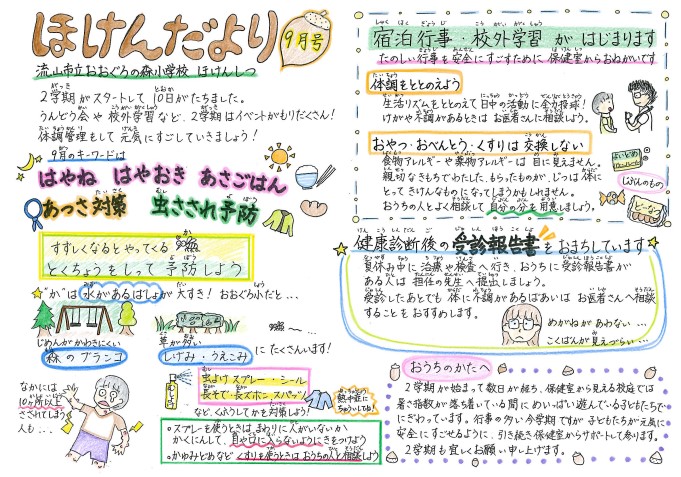 ほけんだより
9月号
流山市立おおぐろの森小学校 ほけんしつ
2学期がスタートして10日がたちました。
うんどう会や校外学習など、2学期はイベントがもりだくさん!
体調管理もして元気にすごしていきましょう!
9月のキーワードは
はやね はやおき あさごはん
あつさ対策 虫さされ予防
すずしくなるとやってくる 蚊
とくちょうをして予防しよう
“か”は水があるばしょが大すき! おおぐろ小だと…
じめんがかわきにくい
森のブランコ
草が多い
しげみ・うえこみ
にたくさんいます!
なかには
10ヶ所以上
さされてしまう
人も…
虫よけスプレー・シール
長そで・長ズボン、スパッツ
など、くふうしてかを対策しよう!
熱中症に
ちゅういしてね!
○スプレーを使うときは、まわりに人がいないか
かくにんして、目や口に入らないようにきをつけよう
○かゆみどめなど くすりを使うときは おうちの人と相談しよう
宿泊行事・校外学習 が はじまります
たのしい行事を安全にすごすために 保健室からおねがいです
体調をととのえよう
生活リズムをととのえて日中の活動に全力投球!
けがや不調があるときは お医者さんに相談しよう。
おやつ・おべんとう・くすりは 交換しない
食物アレルギーや薬物アレルギーは 目に見えません。
親切なきもちでわたした、もらったものが、じつは体に
とって きけんなものに なってしまうかもしれません。
おうちの人とよく相談して 自分の分を用意しましょう。
よいどめ
じぶんのもの
ピーナッツ
健康診断後の受診報告書をおまちしています
夏休み中に治療や検査へ行き、おうちに受診報告書が
ある人は 担任の先生へ提出しましょう。
受診したあとでも 体に不調があるばあいは お医者さんへ相談
することをおすすめします。
めがねがあわない…
こくばんが見えづらい…
おうちのかたへ
2学期が始まって数日が経ち、保健室から見える校庭では
暑さ指数が落ち着いている間に めいっぱい遊んでいる子どもたちで
にぎわっています。行事の多い今学期ですが 子どもたちが元気に
安全にすごせるように、引き続き保健室からサポートして参ります。
2学期も宜しくお願い申し上げます。